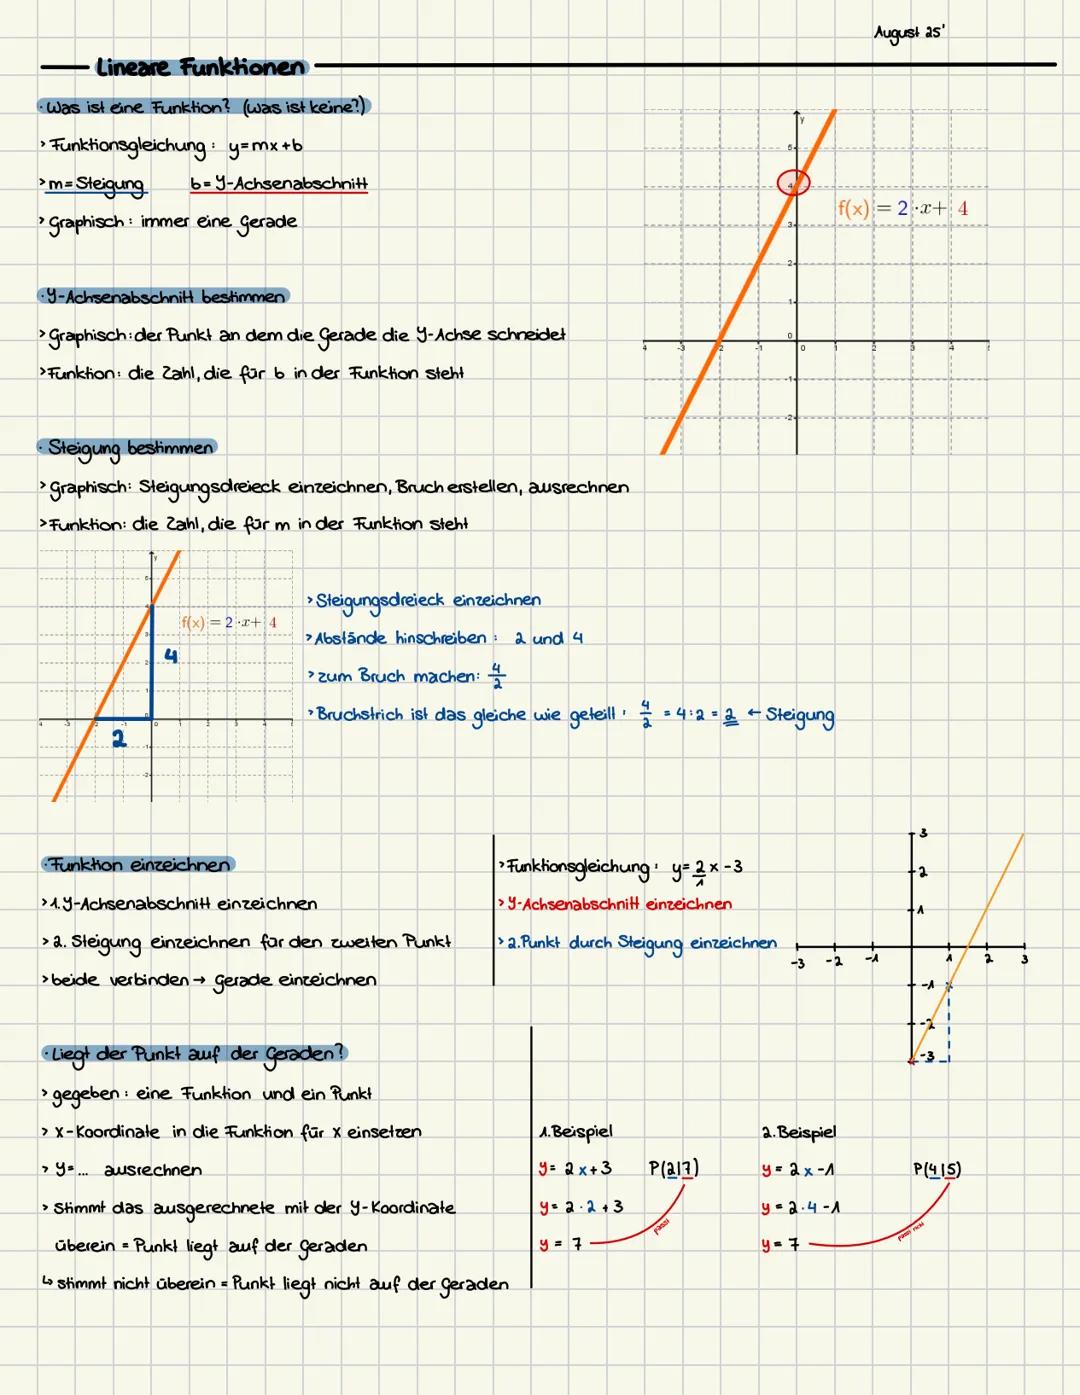 August 25'
Lineare Funktionen
· Was ist eine Funktion? (was ist keine?)
> Funktionsgleichung: y=mx+b
> m=Steigung b= y-Achsenabschnitt
> Graphisch: immer eine Gerade
y
5
4
f(x) = 2·x+ 4
3
2
1
0
4 -3 2 -1 0 1 2 3 4
-1
-2
· y-Achsenabschnitt bestimmen
> Graphisch: der Punkt an dem die Gerade die y-Achse schneidet
> Funktion: die Zahl, die für b in der Funktion steht
· Steigung bestimmen
> Graphisch: Steigungsdreieck einzeichnen, Bruch erstellen, ausrechnen
> Funktion: die Zahl, die für m in der Funktion steht
y
5
f(x) = 2·x+ 4
3
4
2
1
4 -3 2 -1 0 1 2 3 4 5
2
-1
-2
> Steigungsdreieck einzeichnen
> Abstände hinschreiben: 2 und 4
> zum Bruch machen: 4/2
> Bruchstrich ist das gleiche wie geteilt: 4/2 = 4:2 = 2 ← Steigung
· Funktion einzeichnen
> 1. y-Achsenabschnitt einzeichnen
> 2. Steigung einzeichnen für den zweiten Punkt
> beide verbinden → Gerade einzeichnen
> Funktionsgleichung: y= 2/1 x -3
> y-Achsenabschnitt einzeichnen
> 2. Punkt durch Steigung einzeichnen
3
2
1
-3 -2 -1 1 2 3
-1
-2
-3
· Liegt der Punkt auf der Geraden?
> gegeben: eine Funktion und ein Punkt
> x-Koordinate in die Funktion für x einsetzen
> y=... ausrechnen
> stimmt das ausgerechnete mit der y-Koordinate
überein = Punkt liegt auf der Geraden
↳ stimmt nicht überein = Punkt liegt nicht auf der Geraden
1. Beispiel
y= 2x+3 P(2|7)
y= 2·2+3
y = 7
passt
2. Beispiel
y = 2x-1 P(4|5)
y = 2·4-1
y = 7
passt nicht